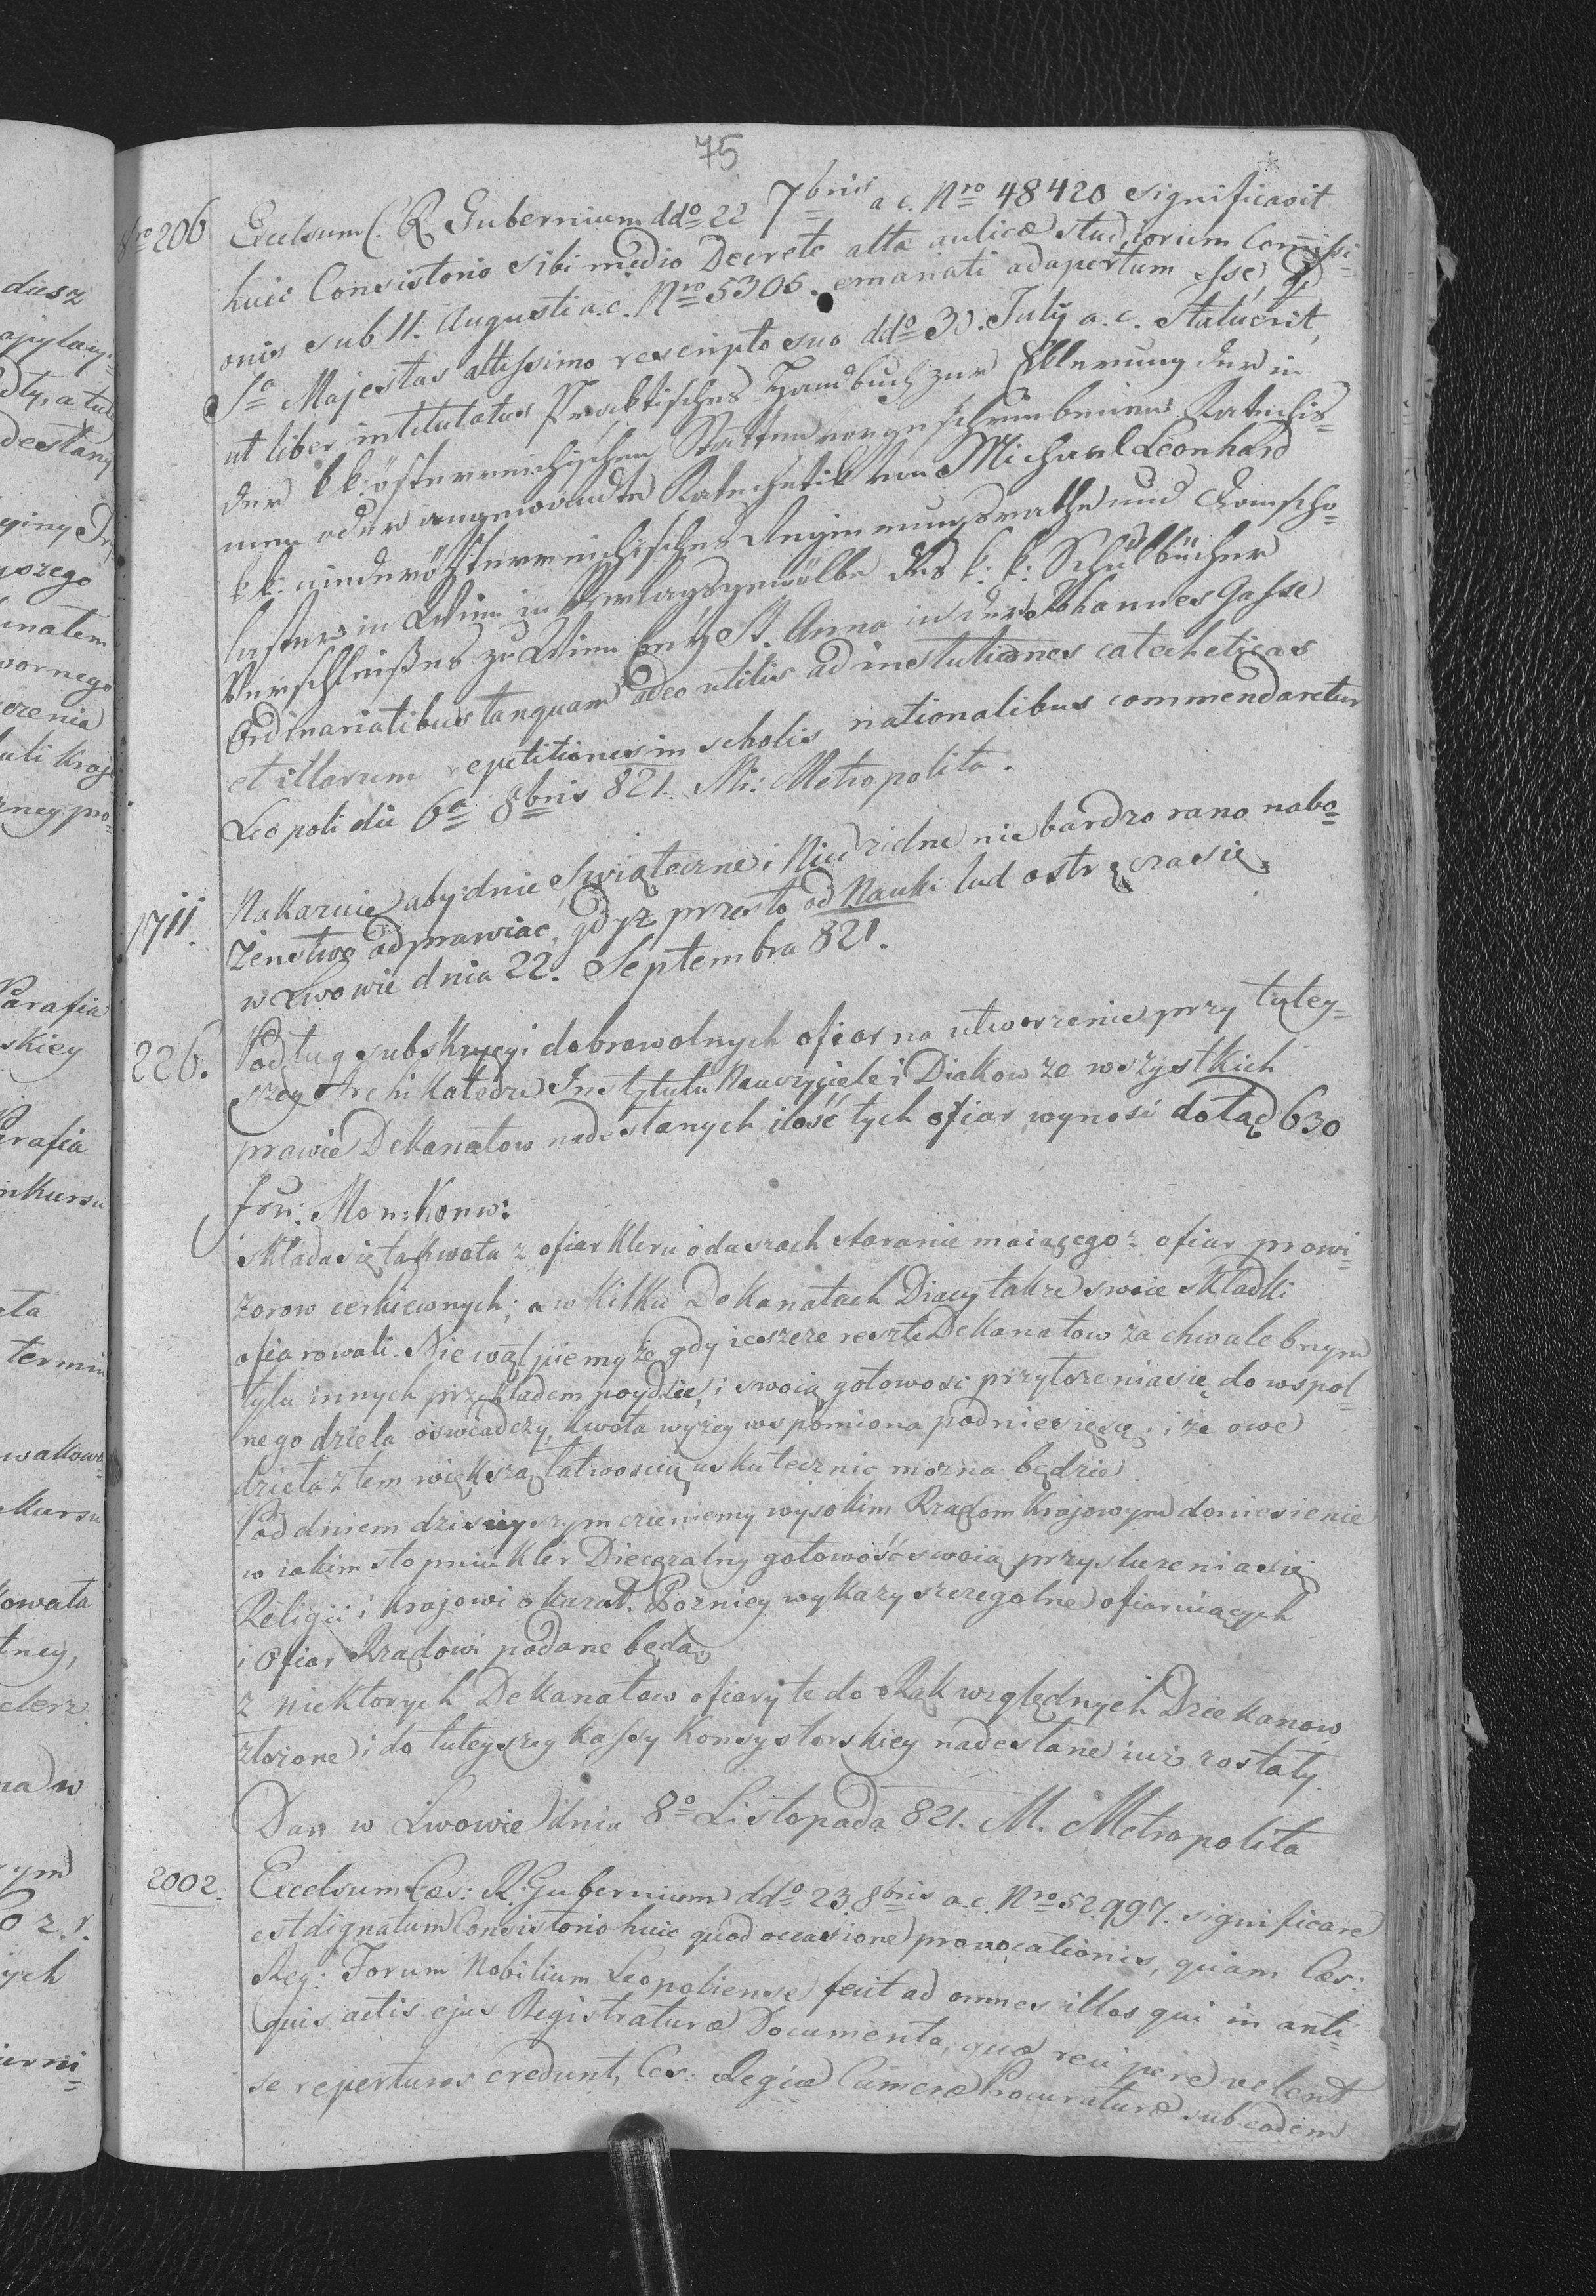 75
Nro 206 Excelsum C. R. Gubernium ddo 22 7bris a c. Nro 48420 significavit
huic Consistorio sibi medio Decreto altæ aulicæ studiorum Comissi=
onis sub 11. Augusti a. c. Nro 5306. emanati adapertum esse, q̃d
Sa Majestas altissimo rescripto suo ddo 30. July a. c. statuerit,
ut liber intitulatus Praktisches Handbuch zur Erklerung der in
den k k: österreichischen Staaten vorgeschriebenen Katechis=
men oder angewandte Katechetik von Michael Leonhard
k k: niederösterreichischer Regierungsrathe und Domscho=
laster in Wien in Verlagsgewölbe des k: k: Schulbücher
Verschleißes zu Wien bey St. Anna in der Johannes Gasse
Ordinariatibus tanquam adeo utilis ad instutiones catecheticas
et illarum repetitiones in scholis nationalibus commendaretur
Leopoli die 6a 8bris 821. Mi: Metropolita.
1711. Nakazuie aby dnie Swiąteczne i Niedzielne nie bardzo rano nabo=
żenstwo odprawiac, gdyz przesto od Nauki lud ostręcza się.
w Lwowie dnia 22. Septembra 821.
226. Podług subskrypcyi dobrowolnych ofiar na utworzenie przy tutey=
szey Archikatedrze Instytutu Nauczyciele i Diakow ze wszystkich
prawie Dekanatow nadesłanych ilość tych ofiar wynosi dotąd 630
fru: Mon: Konw:
składa się ta kwota z ofiar kleru o duszach staranie maiącego z ofiar prowi=
zorow cerkiewnych; a w kilku Dekanatach Diacy takze swoie składki
ofiarowali. Nie wątpiemy że gdy ieszcze reszte Dekanatow za chwalebnym
tylu innych przykładem poydzie, i swoią gotowosc przyłozenia się do wspol=
nego dzieła oswiadczy, kwota wyzey wspomiona podniesię się i że owe
dzieła z tem większą łatwoscią uskutecznic mozna będzie
Pod dniem dzisieyszym czieniemy wysokim Rządom Krajowym doniesienie
w iakim stopniu Kler Diecezalny gotowość swoią przysłuzenia się
Religii i Krajowi okazał. Pozniey wykazy szczegolne ofiaruiących
i ofiar Rządowi podane będą.
z niektorych Dekanatow ofiary te do Rąk względnych Dziekanow
złozone i do tuteyszey kassy Konsystorskiey nadesłane iuż zostały.
Dan w Lwowie dnia 8o Listopada 821. M. Metropolita
2002. Excelsum Cæs: R. Gubernium ddo 23. 8bris a. c. Nro 52.997. significare
est dignatum Consistorio huic quod occasione provocationis, quam Cæs:
Reg: Forum Nobilium Leopoliense fecit ad omnes illos qui in anti=
quis actis ejus Registraturæ Documenta, quæ recipere velent
se reperturos credunt, Cæs. Regiæ Cameræ Procuraturæ sub eodem